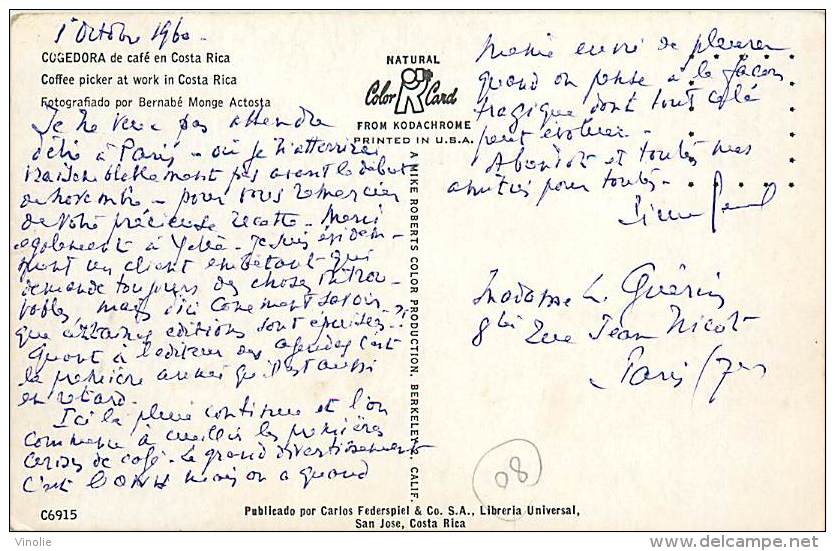 1er Octobre 1960
COGEDORA de café en Costa Rica
Coffee picker at work in Costa Rica
Fotografiado por Bernabé Monge Actosta
Je ne veux pas attendre
d'être à Paris - où je n'atterrirai
vraisemblablement pas avant le début
de novembre - pour vous remercier
de votre précieuse recette. Merci
également à
Je suis évidem-
ment un client embêtant qui
demande toujours des choses introu-
vables mais d'ici comment savoir
que certaines éditions sont épuisées ?
Quant à l'éditeur des agendas c'est
la première année qu'il est aussi
en retard.
Ici la pluie continue et l'on
commence à cueillir les premières
cerises de café. Le grand divertissement
c'est l'ONU mais on a quand
NATURAL
Color Card
FROM KODACHROME
PRINTED IN U.S.A.
A MIKE ROBERTS COLOR PRODUCTION, BERKELEY 2, CALIF.
même envie de pleurer
quand on pense à la façon
tragique dont tout cela
peut évoluer.
A bientôt et toutes mes
amitiés pour toutes.
Madame L. Guérin
8 bis Rue Jean Nicot
Paris (7e)
08
C6915
Publicado por Carlos Federspiel & Co. S.A., Libreria Universal,
San Jose, Costa Rica
Vinolie
www.delcampe.net